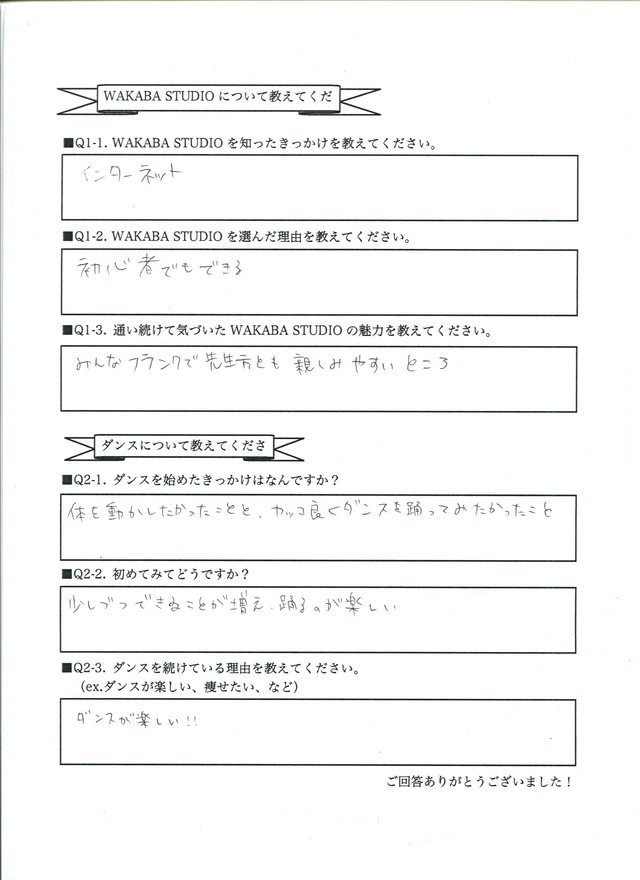 WAKABA STUDIO について教えてくだ
■Q1-1. WAKABA STUDIO を知ったきっかけを教えてください。
インターネット
■Q1-2. WAKABA STUDIO を選んだ理由を教えてください。
初心者でもできる
■Q1-3. 通い続けて気づいた WAKABA STUDIO の魅力を教えてください。
みんなフランクで先生方とも親しみやすいところ
ダンスについて教えてくださ
■Q2-1. ダンスを始めたきっかけはなんですか？
体を動かしたかったことと、カッコ良くダンスを踊ってみたかったこと
■Q2-2. 初めてみてどうですか？
少しづつできることが増え、踊るのが楽しい
■Q2-3. ダンスを続けている理由を教えてください。
（ex.ダンスが楽しい、痩せたい、など）
ダンスが楽しい!!
ご回答ありがとうございました！